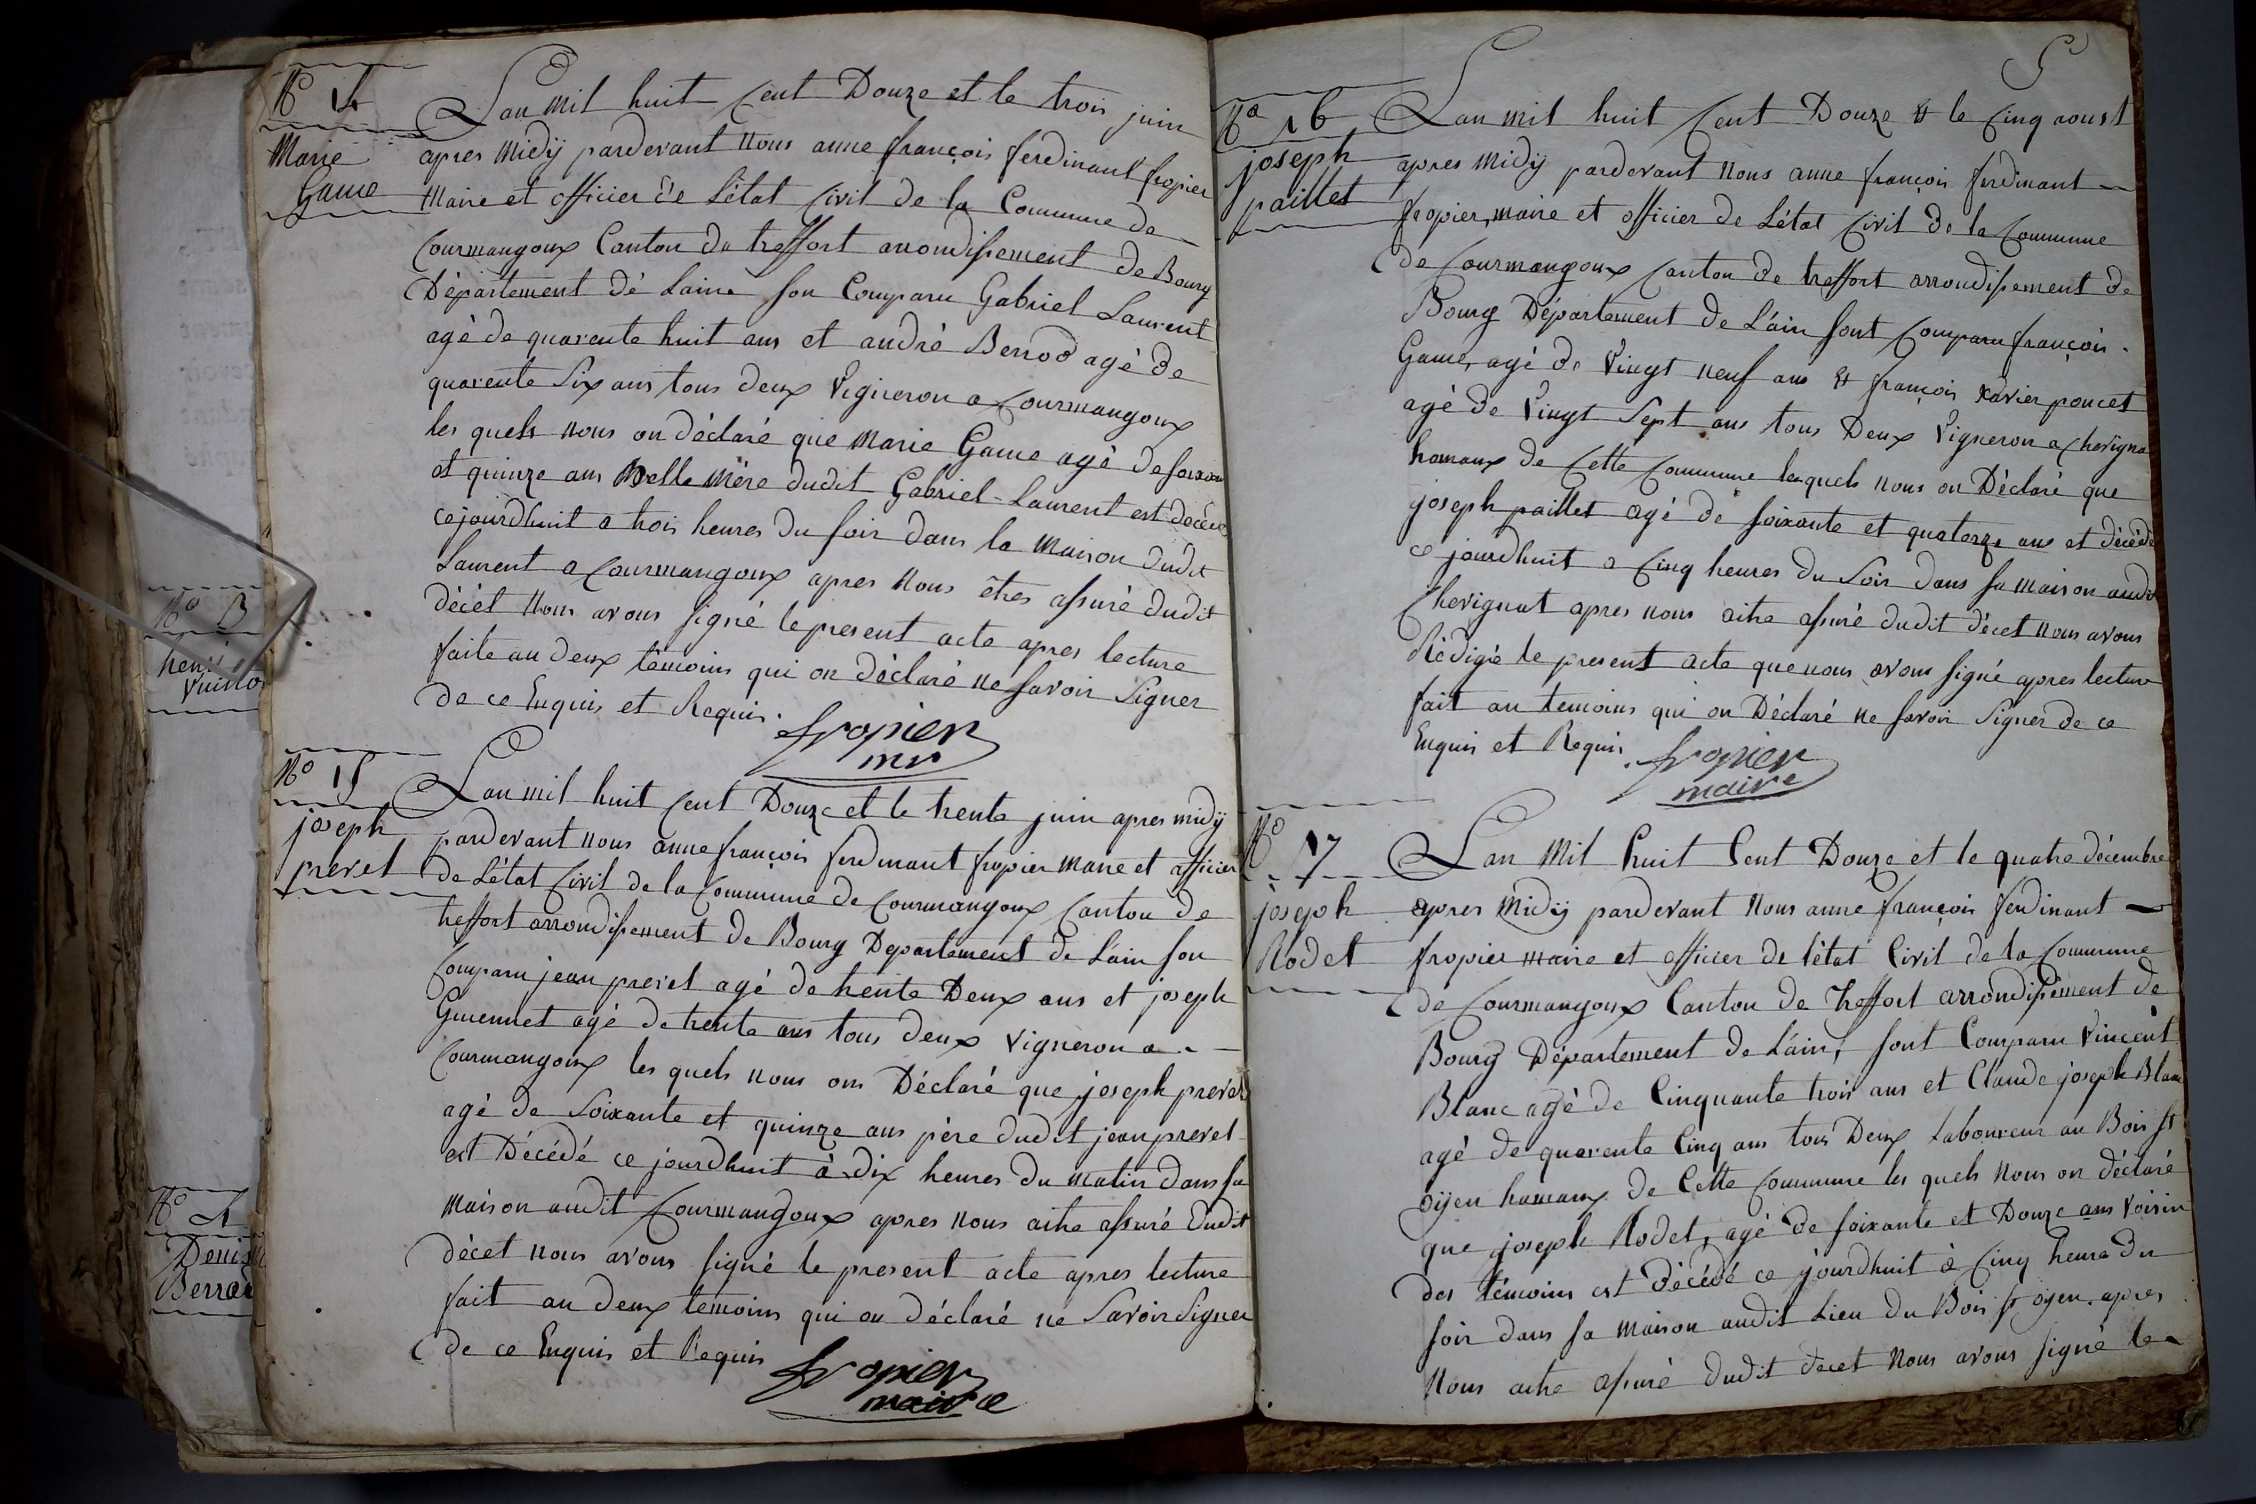 No 14
Marie
Game
Lan mil huit Cent Douze et le trois juin
apres Midÿ pardevant nous anne françois ferdinant fropier
Maire et officier de Létat Civil de la Commune de
Courmangoux Canton de treffort arrondissement de Bourg
Département dé Lainn son Comparu Gabriel Laurent
agé de quarente huit ans et andré Berrod agé de
quarente Six ans tous deux Vigneron a Courmangoux
les quels nous on déclaré que Marie Game agé de soixan
et quinze ans Belle Mère dudit Gabriel Laurent est décéd
cejourdhuit a trois heures du soir dans la Maison dudit
Laurent a Courmangoux apres nous êtres assuré dudit
décét Nous avons signé le present acte apres lecture
faite au deux témoins qui on déclaré ne savoir Signer
de ce Enquis et Requis.
fropier
mr
No 15
joseph
prevet
Lan mil huit Cent Douze et le trente juin apres midÿ
pardevant nous anne françois ferdinant fropier Maire et officier
de Létat Civil de la Commune de Courmangoux Canton de
treffort arrondissement de Bourg Departement de Lain son
Comparu jean prevet agé de trente Deux ans et joseph
Guennet agé de trente ans tous deux Vigneron a
Courmangoux les quels nous ons Déclaré que joseph prevet
agé de Soixante et quinze ans père dudit jean prevet
est Décédé ce jourdhuit à dix heures du matin dans sa
maison audit Courmangoux apres nous aitre assuré dudit
décet nous avons signé le present acte apres lecture
fait au deux temoins qui on déclaré ne Savoir Signer
de ce Enquis et Requis
fropier
maire
5
No 16
joseph
paillet
Lan mil huit Cent Douze et le Cinq aoust
apres Midÿ pardevant Nous anne françois ferdinant
fropier, maire et officier de Létat Civil de la Commune
de Courmangoux Canton de treffort arrondissement de
Bourg Département de Láin sont Comparu françois
Game, agé de Vingt neuf ans et françois xavier poncet
agé de Vingt Sept ans tous Deux Vigneron a Chevigna
hamaux de Cette Commune lesquels nous on Déclaré que
joseph paillet agé de soixante et quatorze ans et décédé
ce jourdhuit a Cinq heures du Soir dans sa maison audi
Chevignat apres nous aitre assuré dudit décet nous avons
Rédigée le present acte que nous avons signé apres lecture
fait au temoins qui on Déclaré ne savoir Signer de ce
Enquis et Requis
fropier
maire
No 17
joseph
Rodet
Lan Mil huit Cent Douze et le quatre décembre
apres Midÿ pardevant Nous anne françois ferdinant
fropier maire et officier de létat Civil de la Commune
de Courmangoux Canton de Treffort arrondissement de
Bourg Département de Láin, sont Comparu Vincent
Blanc agé de Cinquante trois ans et Claude joseph Blanc
agé de quarente Cinq ans tous Deux Laboureur au Bois st
oÿen hamaux de Cette Commune les quels Nous on déclaré
que joseph Rodet, agé de soixante et Douze ans Voisin
des témoins est décédé ce jourdhuit à Cinq heure du
soir dans sa maison audit Lieu du Bois st oÿen. apres
Nous aitre assuré dudit decet Nous avons signé le
No
henri
No
Denis
Berrod